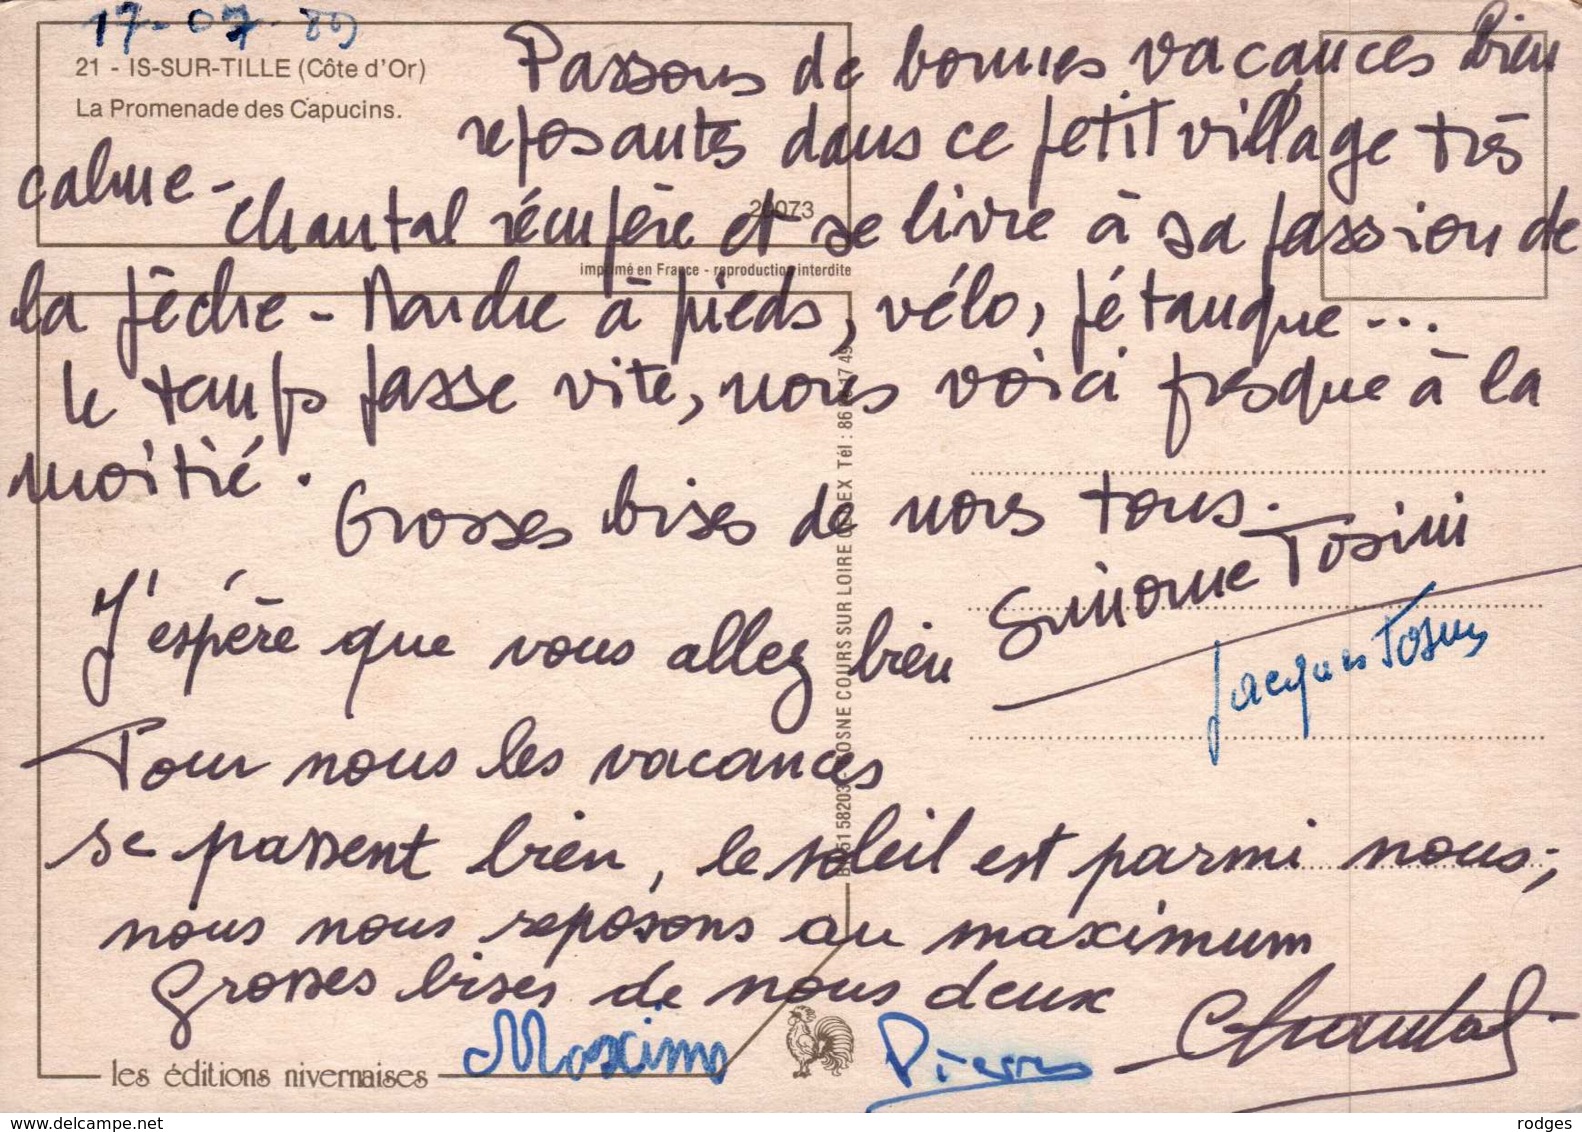 17-07-89
21 - IS-SUR-TILLE (Côte d'Or)
La Promenade des Capucins.
Passons de bonnes vacances bien
reposantes dans ce petit village très
calme -
Chantal récupère et se livre à sa passion de
20073
imprimé en France - reproduction interdite
la pêche - Marche à pieds, vélo, pétanque...
le temps passe vite, nous voici presque à la
moitié.
Grosses bises de nous tous.
Simone Tosini
Jacques Tosini
J'espère que vous allez bien
Pour nous les vacances
se passent bien, le soleil est parmi nous;
nous nous reposons au maximum
Grosses bises de nous deux
Chantal
Maxime
Pierre
les éditions nivernaises
58203 COSNE COURS SUR LOIRE CEDEX Tél : 86
rodges